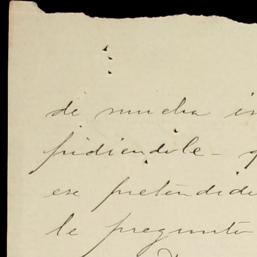 de mucha in
pidiendole - q
ese pretendid
le pregunto